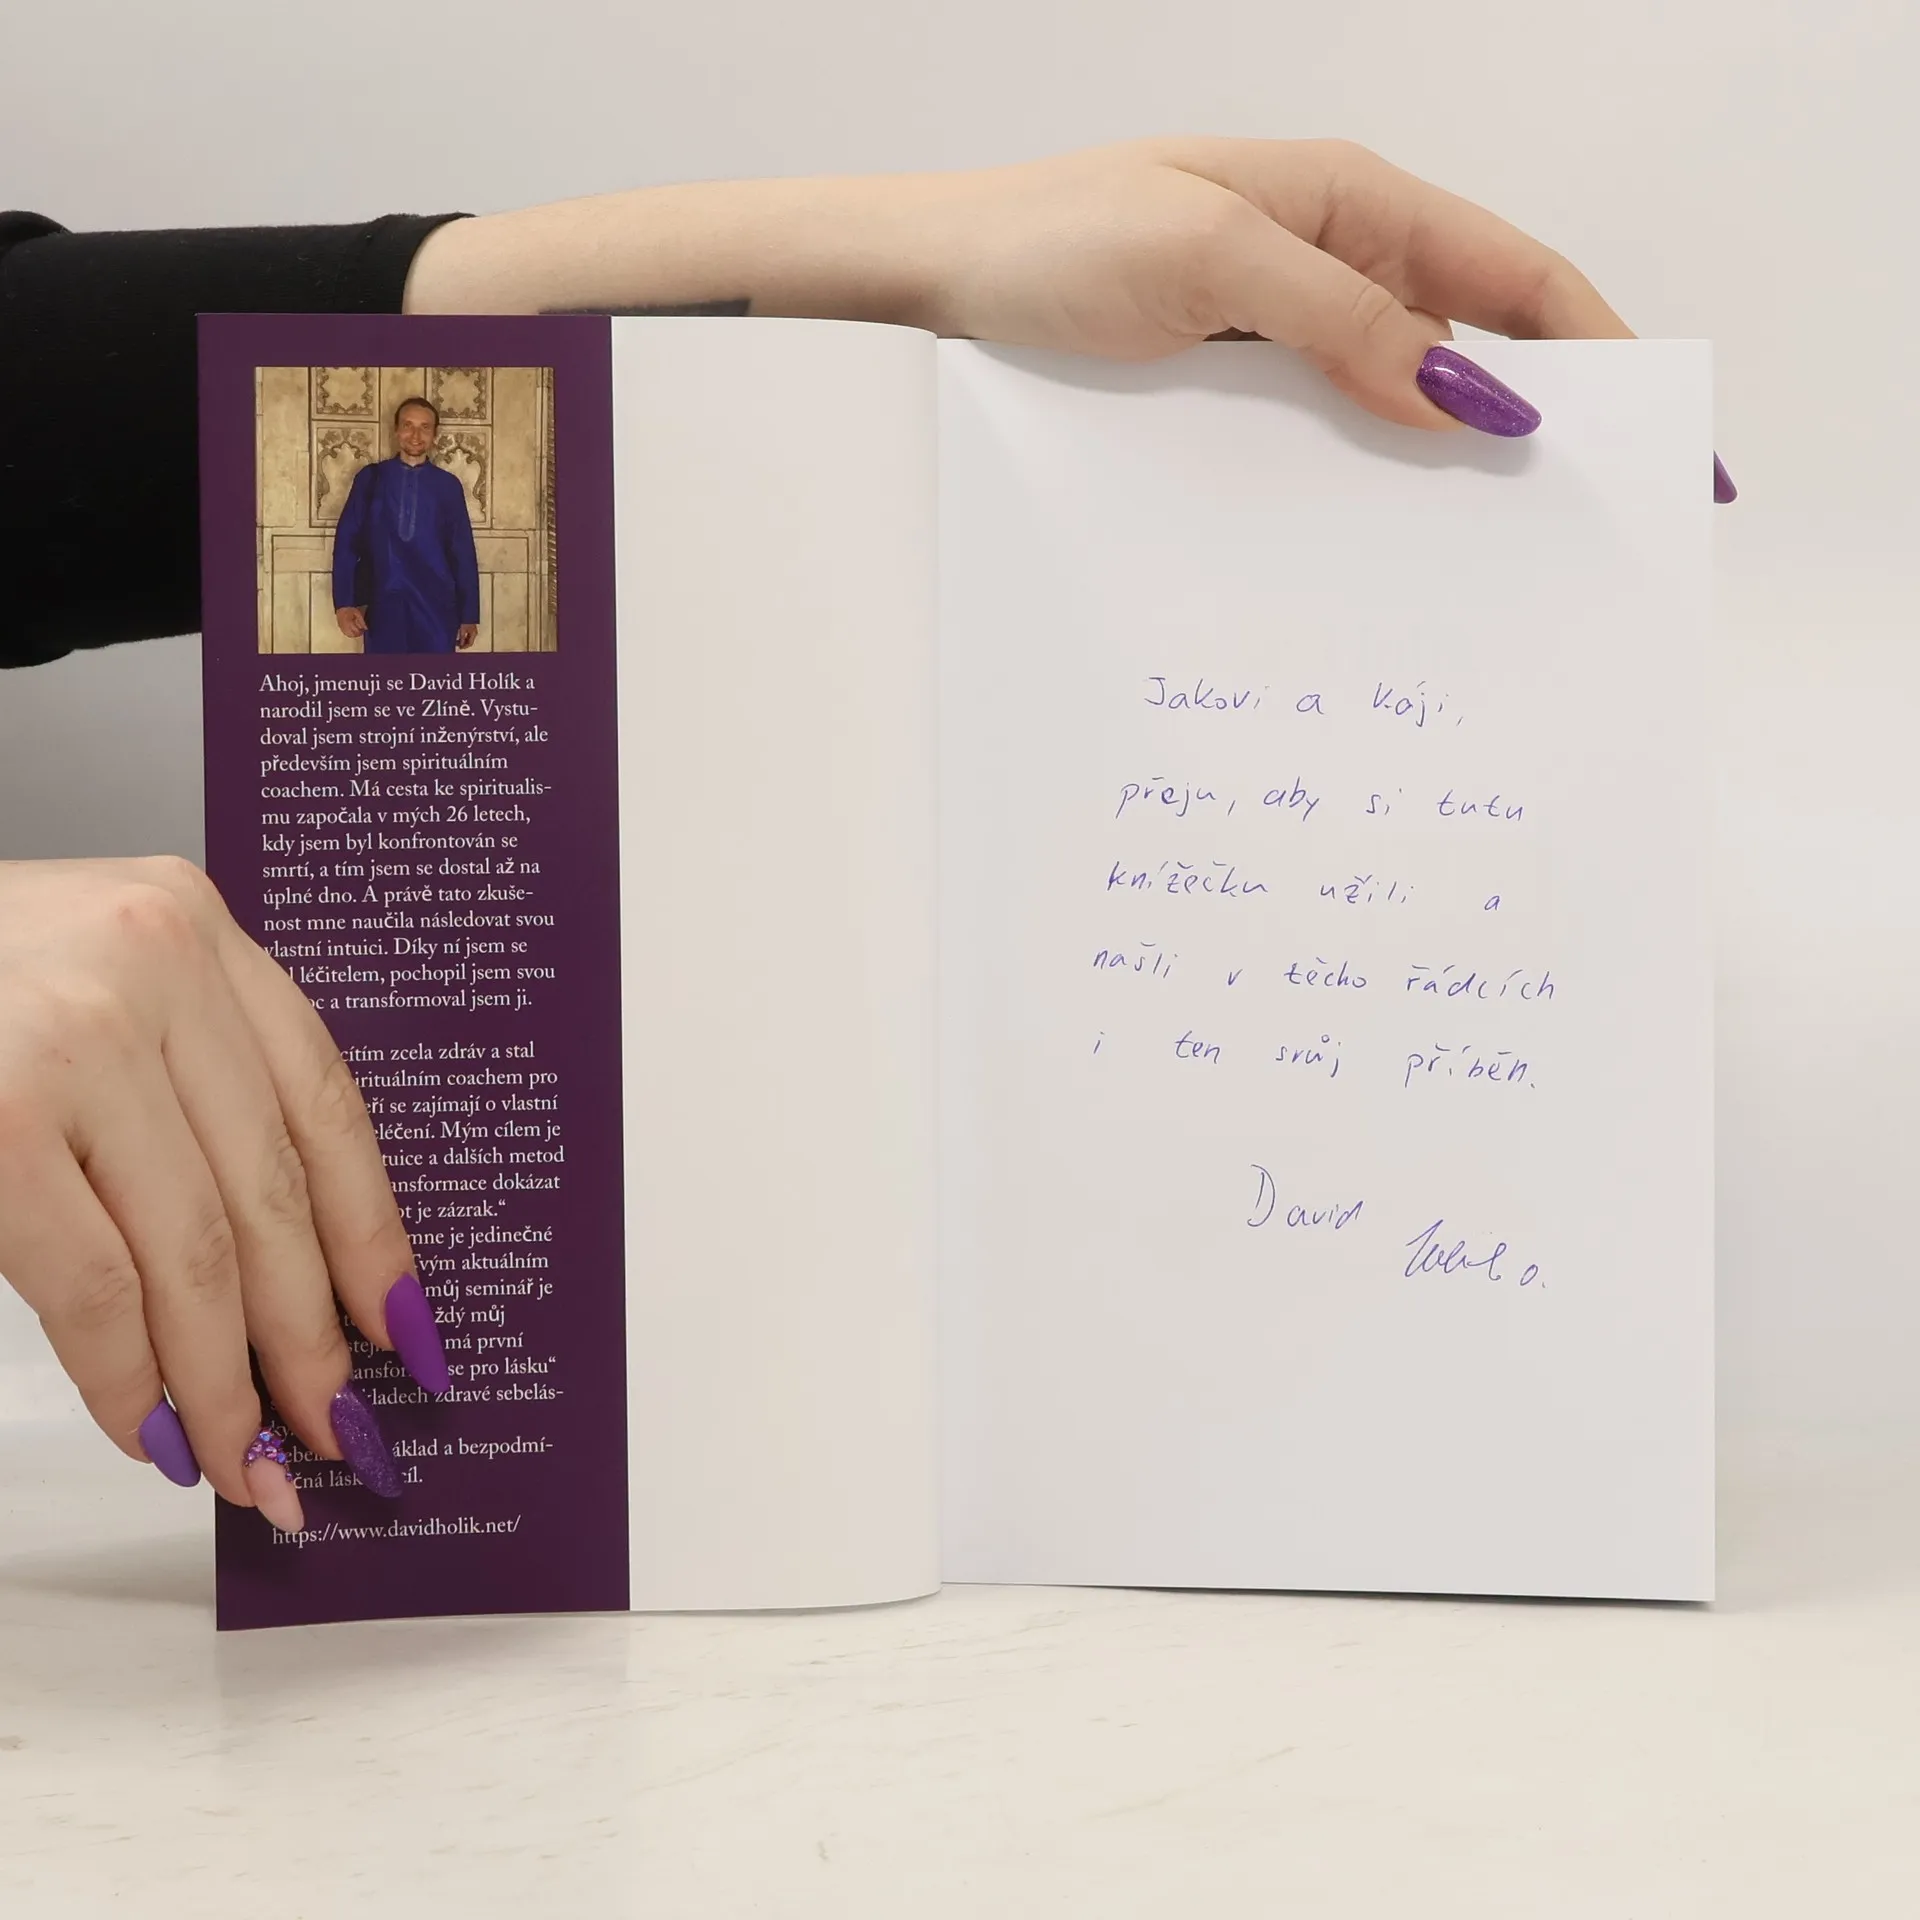 Ahoj, jmenuji se David Holík a
narodil jsem se ve Zlíně. Vystu-
doval jsem strojní inženýrství, ale
především jsem spirituálním
coachem. Má cesta ke spiritualis-
mu započala v mých 26 letech,
kdy jsem byl konfrontován se
smrtí, a tím jsem se dostal až na
úplné dno. A právě tato zkuše-
nost mne naučila následovat svou
vlastní intuici. Díky ní jsem se
léčitelem, pochopil jsem svou
a transformoval jsem ji.
cítím zcela zdráv a stal
coachem pro
se zajímají o vlastní
Mým cílem je
a dalších metod
dokázat
je zázrak.“
mne je jedinečné
aktuálním
můj seminář je
můj
má první
se pro lásku“
zdravé sebelás-
a bezpodmí-
https://www.davidholik.net/
Jakovi a Káji,
přeju, aby si tutu
knížečku užili a
našli v těcho řádcích
i ten svůj příběh.
David